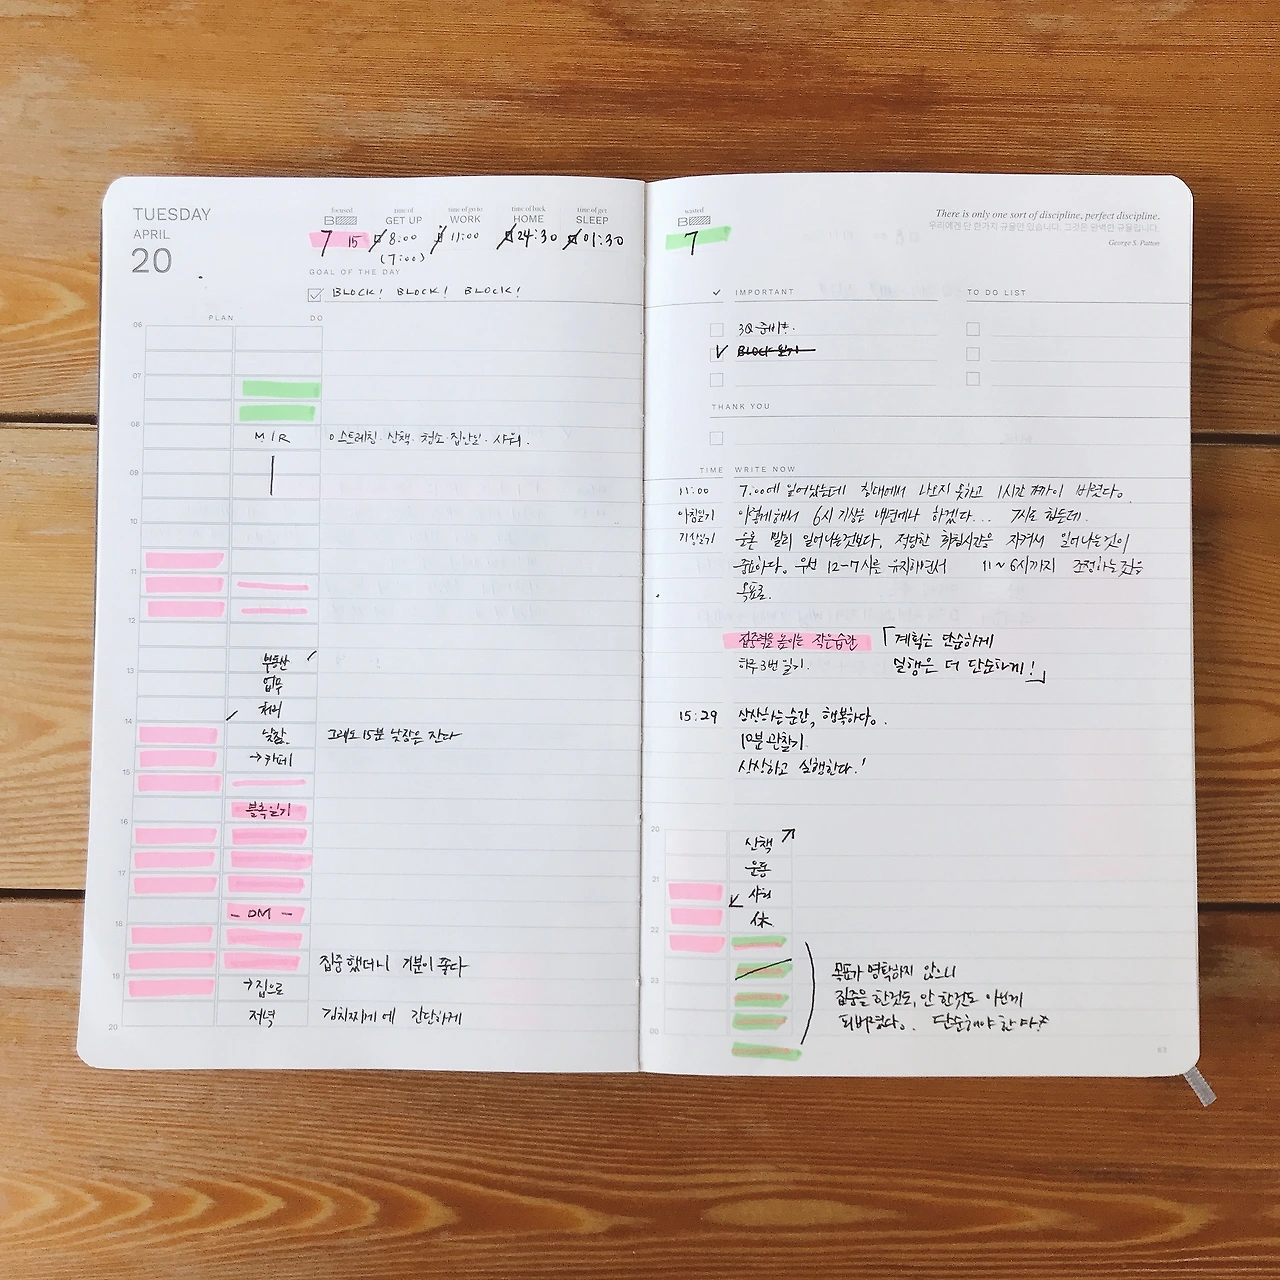 TUESDAY
APRIL
20
focused
B
7 15
time of
GET UP
8:00
(7:00)
time of go to
WORK
11:00
time of back
HOME
24:30
time of get
SLEEP
01:30
GOAL OF THE DAY
BLOCK! BLOCK! BLOCK!
PLAN DO
06
07
08
MIR
스트레칭 · 산책 · 청소 · 집안일 · 샤워.
09
10
11
12
부동산
13
업무
처리
14
낮잠. 그래도 15분 낮잠은 잔다
→카페
15
블록일기
16
17
- DM -
18
집중했더니 기분이 좋다
19
→집으로
저녁 김치찌개에 간단하게
20
wasted
B
7
There is only one sort of discipline, perfect discipline.
우리에겐 단 한가지 규율만 있습니다. 그것은 완벽한 규율입니다.
George S. Patton
IMPORTANT
TO DO LIST
3Q 준비!
BLOCK 일기
THANK YOU
TIME WRITE NOW
11:00 7:00에 일어났는데 침대에서 나오지 못하고 1시간 까이 버렸다.
아침일기 이렇게해서 6시 기상은 내년에나 하겠다... 7시도 힘든데.
기상일기 물론 빨리 일어나는것보다, 적당한 취침시간을 지켜서 일어나는것이
중요하다. 우선 12-7시를 유지하면서 11~6시까지 조정하는것을
목표로.
집중력을 높이는 작은습관 「계획은 단순하게
하루 3번 일기. 실행은 더 단순하게!」
15:29 상상하는 순간, 행복하다.
10분 관찰기
상상하고 실행한다!
20
산책
운동
21
샤워
休
22
23
목표가 명확하지 않으니
집중을 한것도, 안 한것도 아닌게
되버렸다. 단순해야 한다
00
63